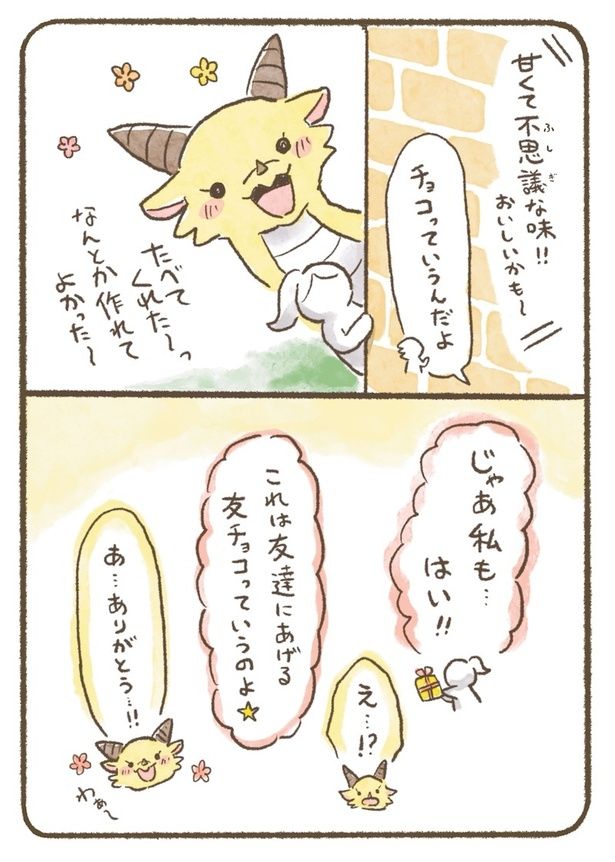 甘くて不思議な味!!
ふしぎ
おいしいかも〜
チョコっていうんだよ
たべて
くれた〜っ
なんとか作れて
よかった〜
じゃあ私も…
はい!!
え…!?
これは友達にあげる
友チョコっていうのよ★
あ…ありがとう…!!
わぁ〜